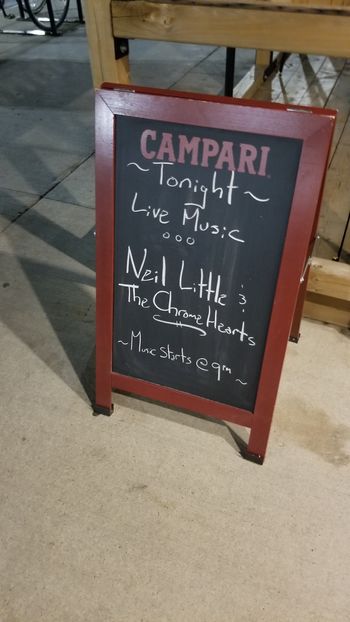 CAMPARI
~ Tonight ~
Live Music
Neil Little &
The Chrome Hearts
~ Music Starts @ 9pm ~